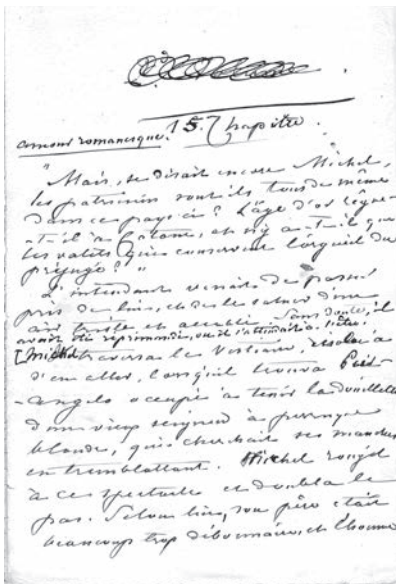 amour romanesque. 15. Chapitre.
"Mais, se disait encore Michel,
les patriciens sont ils tous de même
dans ce pays ci? L'âge d'or règne
-t-il à Catane, et n'y a-t-il que
les valets qui conservent l'orgueil du
préjugé?"
L'intendant venait de passer
près de lui, et de le saluer d'un
air triste et accablé. Sans doute, il
avait été réprimandé, ou il s'attendait à l'être.
Michel traversa le vestiaire, résolu à
s'en aller, lorsqu'il trouva Pier-
-angelo occupé à tenir la douillette
d'un vieux seigneur à perruque
blonde, qui cherchait ses manches
en tremblottant. Michel rougit
à ce spectacle et doubla le
pas. Selon lui, son père était
beaucoup trop débonnaire, et l'homme